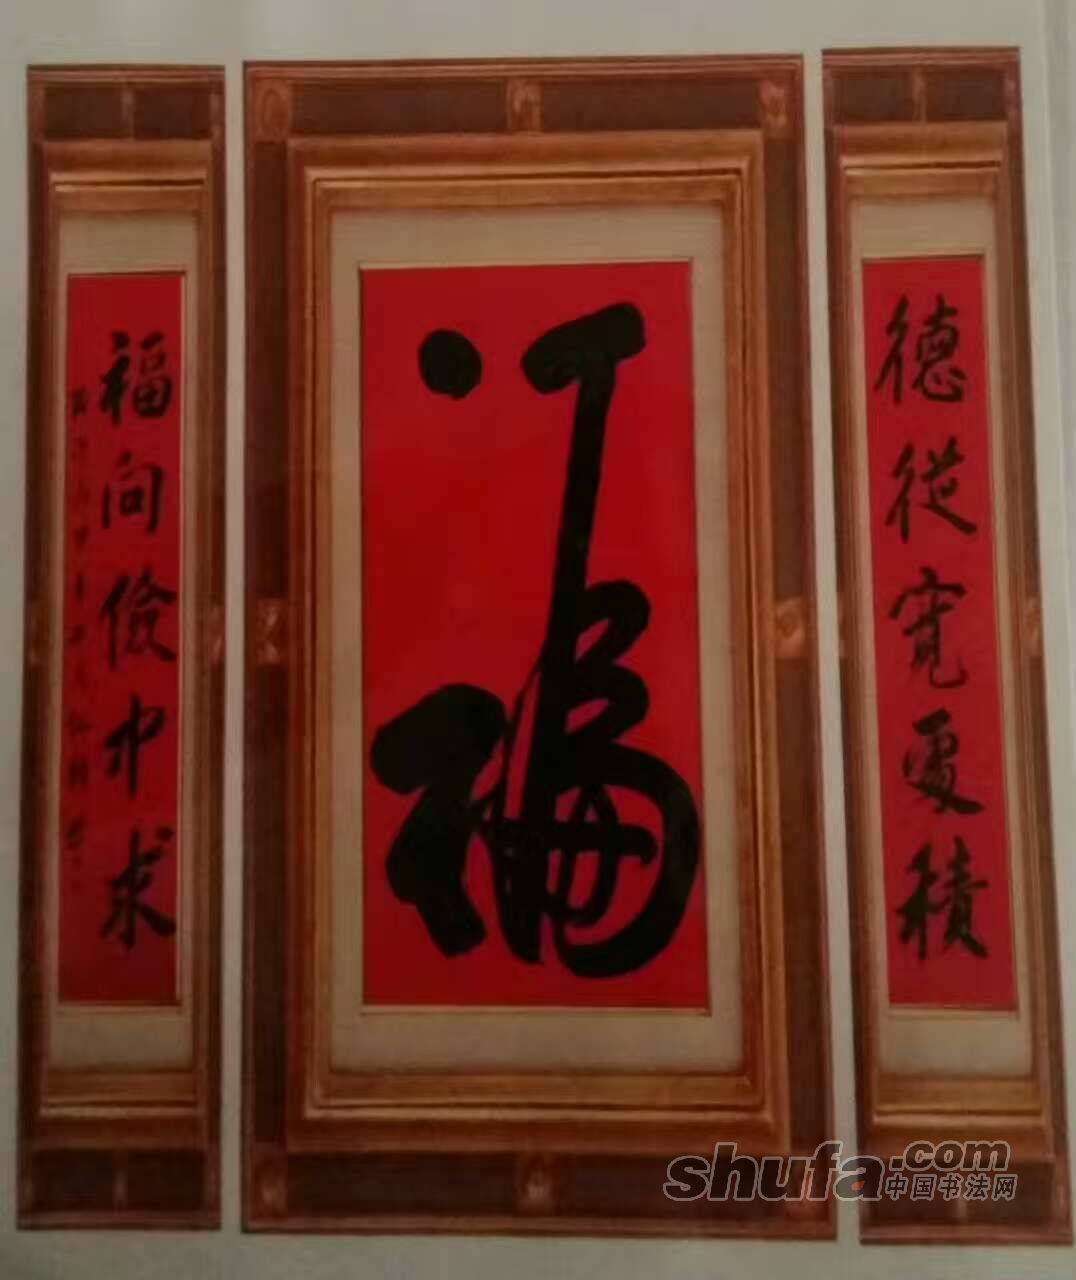 德從寬處積
福
福向儉中求
shufa.com
中国书法网